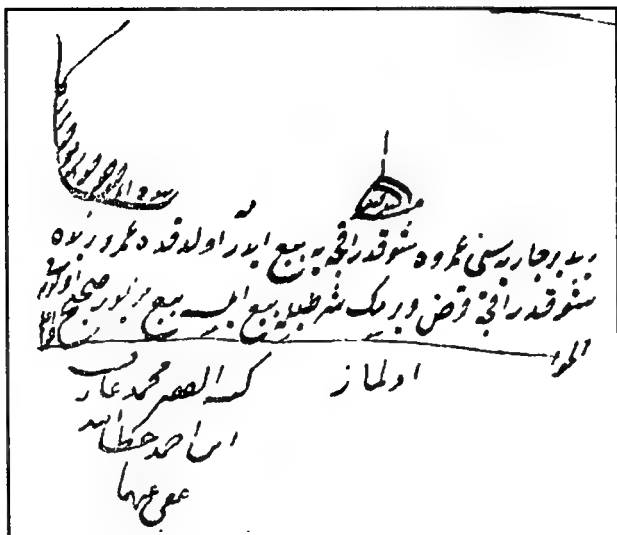 زيد بر جاريه سنى عمروه شو قدر اقچه يه بيع ايدر اولدقده عمرو زيده
شو قدر اقچه قرض ويرمك شرطيله بيع ايلسه بيع مزبور صحيح اولورمى
الجواب
اولماز
كتبه الفقير محمد عارف
ابن احمد عطاالله
عفى عنهما